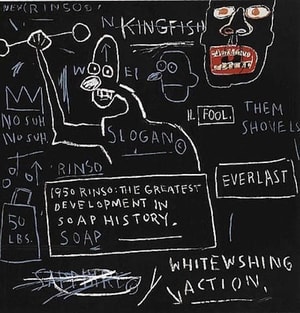 NEW (RINSO)!
N
KINGFISH
W E
NO SUH
NO SUH
SLOGAN ©
II. FOOL.
THEM
SHOVELS
RINSO
1950 RINSO: THE GREATEST
DEVELOPMENT IN
SOAP HISTORY.
SOAP
EVERLAST
50
LBS.
WHITEWSHING
ACTION.